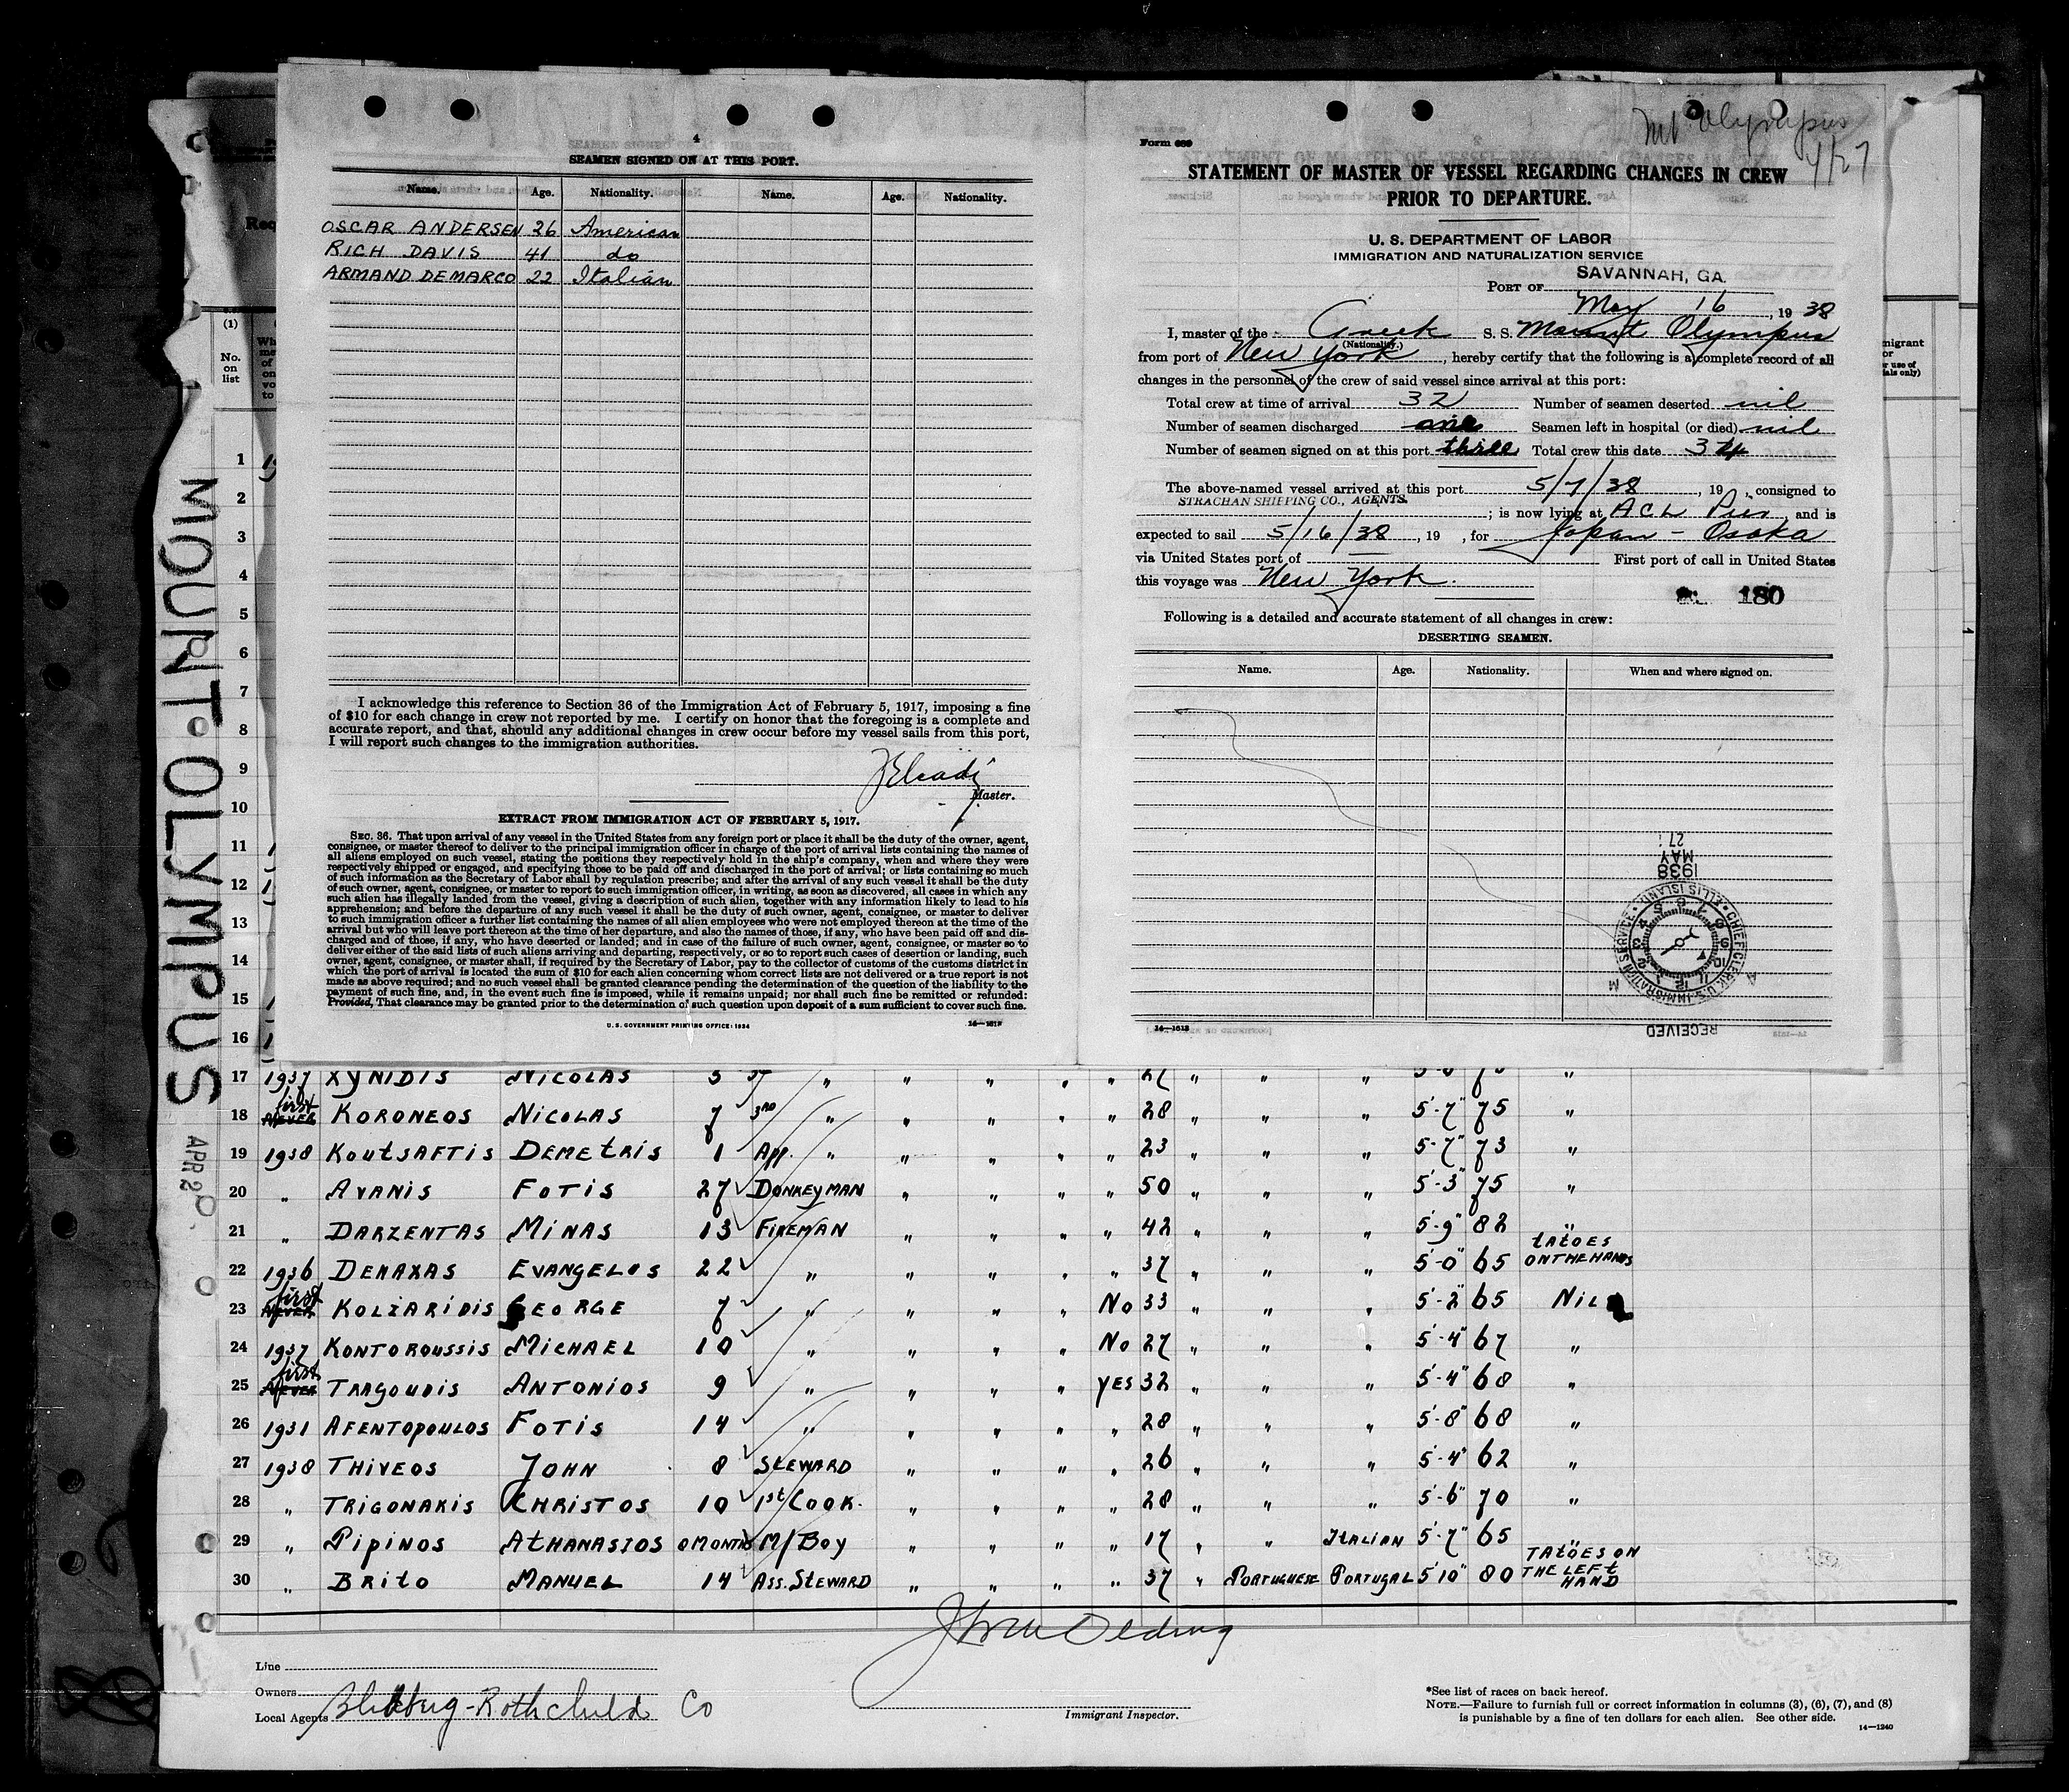 4
SEAMEN SIGNED ON AT THIS PORT.
Name. Age. Nationality. Name. Age. Nationality.
OSCAR ANDERSEN 26 American
RICH DAVIS 41 do
ARMAND DEMARCO 22 Italian
I acknowledge this reference to Section 36 of the Immigration Act of February 5, 1917, imposing a fine
of $10 for each change in crew not reported by me. I certify on honor that the foregoing is a complete and
accurate report, and that, should any additional changes in crew occur before my vessel sails from this port,
I will report such changes to the immigration authorities.
Master.
EXTRACT FROM IMMIGRATION ACT OF FEBRUARY 5, 1917.
SEC. 36. That upon arrival of any vessel in the United States from any foreign port or place it shall be the duty of the owner, agent,
consignee, or master thereof to deliver to the principal immigration officer in charge of the port of arrival lists containing the names of
all aliens employed on such vessel, stating the positions they respectively hold in the ship's company, when and where they were
respectively shipped or engaged, and specifying those to be paid off and discharged in the port of arrival; or lists containing so much
of such information as the Secretary of Labor shall by regulation prescribe; and after the arrival of any such vessel it shall be the duty
of such owner, agent, consignee, or master to report to such immigration officer, in writing, as soon as discovered, all cases in which any
such alien has illegally landed from the vessel, giving a description of such alien, together with any information likely to lead to his
apprehension; and before the departure of any such vessel it shall be the duty of such owner, agent, consignee, or master to deliver
to such immigration officer a further list containing the names of all alien employees who were not employed thereon at the time of the
arrival but who will leave port thereon at the time of her departure, and also the names of those, if any, who have been paid off and dis-
charged and of those, if any, who have deserted or landed; and in case of the failure of such owner, agent, consignee, or master so to
deliver either of the said lists of such aliens arriving and departing, respectively, or so to report such cases of desertion or landing, such
owner, agent, consignee, or master shall, if required by the Secretary of Labor, pay to the collector of customs of the customs district in
which the port of arrival is located the sum of $10 for each alien concerning whom correct lists are not delivered or a true report is not
made as above required; and no such vessel shall be granted clearance pending the determination of the question of the liability to the
payment of such fine, and, in the event such fine is imposed, while it remains unpaid; nor shall such fine be remitted or refunded:
Provided, That clearance may be granted prior to the determination of such question upon deposit of a sum sufficient to cover such fine.
U. S. GOVERNMENT PRINTING OFFICE: 1934 14—1618
Mt. Olympus
4/27
Form 689
STATEMENT OF MASTER OF VESSEL REGARDING CHANGES IN CREW
PRIOR TO DEPARTURE.
U. S. DEPARTMENT OF LABOR
IMMIGRATION AND NATURALIZATION SERVICE
PORT OF SAVANNAH, GA.
May 16, 1938
I, master of the Greek S. S. Mount Olympus
(Nationality.)
from port of New York, hereby certify that the following is a complete record of all
changes in the personnel of the crew of said vessel since arrival at this port:
Total crew at time of arrival 32 Number of seamen deserted nil
Number of seamen discharged one Seamen left in hospital (or died) nil
Number of seamen signed on at this port three Total crew this date 34
The above-named vessel arrived at this port 5/7/38, 19 , consigned to
STRACHAN SHIPPING CO., AGENTS. ; is now lying at ACL Pier, and is
expected to sail 5/16/38, 19 , for Japan - Osaka
via United States port of — First port of call in United States
this voyage was New York.
180
Following is a detailed and accurate statement of all changes in crew:
DESERTING SEAMEN.
Name. Age. Nationality. When and where signed on.
1938
MAY
27
CHIEF CLERK U.S. IMMIGRATION SERVICE • ELLIS ISLAND
RECEIVED
14—1618
MOUNT•OLYMPUS
APR 2
(1)
No.
on
list
1
2
3
4
5
6
7
8
9
10
11
12
13
14
15
16
17 1937 XYNIDIS NICOLAS 5 " " " " " " " " "
18 first NEVER KORONEOS NICOLAS 7 3RD " " " " " 28 " " " 5'-7" 75 "
19 1938 KOUTSAFTIS DEMETRIS 1 App. " " " " " 23 " " " 5-7" 73 "
20 " AVANIS FOTIS 27 DONKEYMAN " " " " 50 " " " 5'-3" 75 "
21 " DARZENTAS MINAS 13 FIREMAN " " " " 42 " " " 5'-9" 82 "
22 1936 DENAXAS EVANGELOS 22 " " " " " 37 " " " 5'-0" 65 TATOES ONTHEHANDS
23 first NEVER KOLIARIDIS GEORGE 7 " " " " No 33 " " " 5'-2" 65 NIL
24 1937 KONTOROUSSIS MICHAEL 10 " " " " No 27 " " " 5'-4" 67 "
25 first NEVER TRAGOUDIS ANTONIOS 9 " " " " YES 32 " " " 5'-4" 68 "
26 1931 AFENTOPOULOS FOTIS 14 " " " " " 28 " " " 5'-8" 68 "
27 1938 THIVEOS JOHN 8 STEWARD " " " " 26 " " " 5'-4" 62 "
28 " TRIGONAKIS CHRISTOS 10 1st COOK. " " " " 28 " " " 5'-6" 70 "
29 " PIPINOS ATHANASIOS 0 MONTHS M/BOY " " " " 17 " " ITALIAN 5'-7" 65 "
30 " BRITO MANUEL 14 ASS. STEWARD " " " " 37 " PORTUGUESE PORTUGAL 5'10" 80 TATOES ON THE LEFT HAND
Line
Owners
Local Agents Rothchild Co
Immigrant Inspector.
*See list of races on back hereof.
NOTE.—Failure to furnish full or correct information in columns (3), (6), (7), and (8)
is punishable by a fine of ten dollars for each alien. See other side.
14—1240